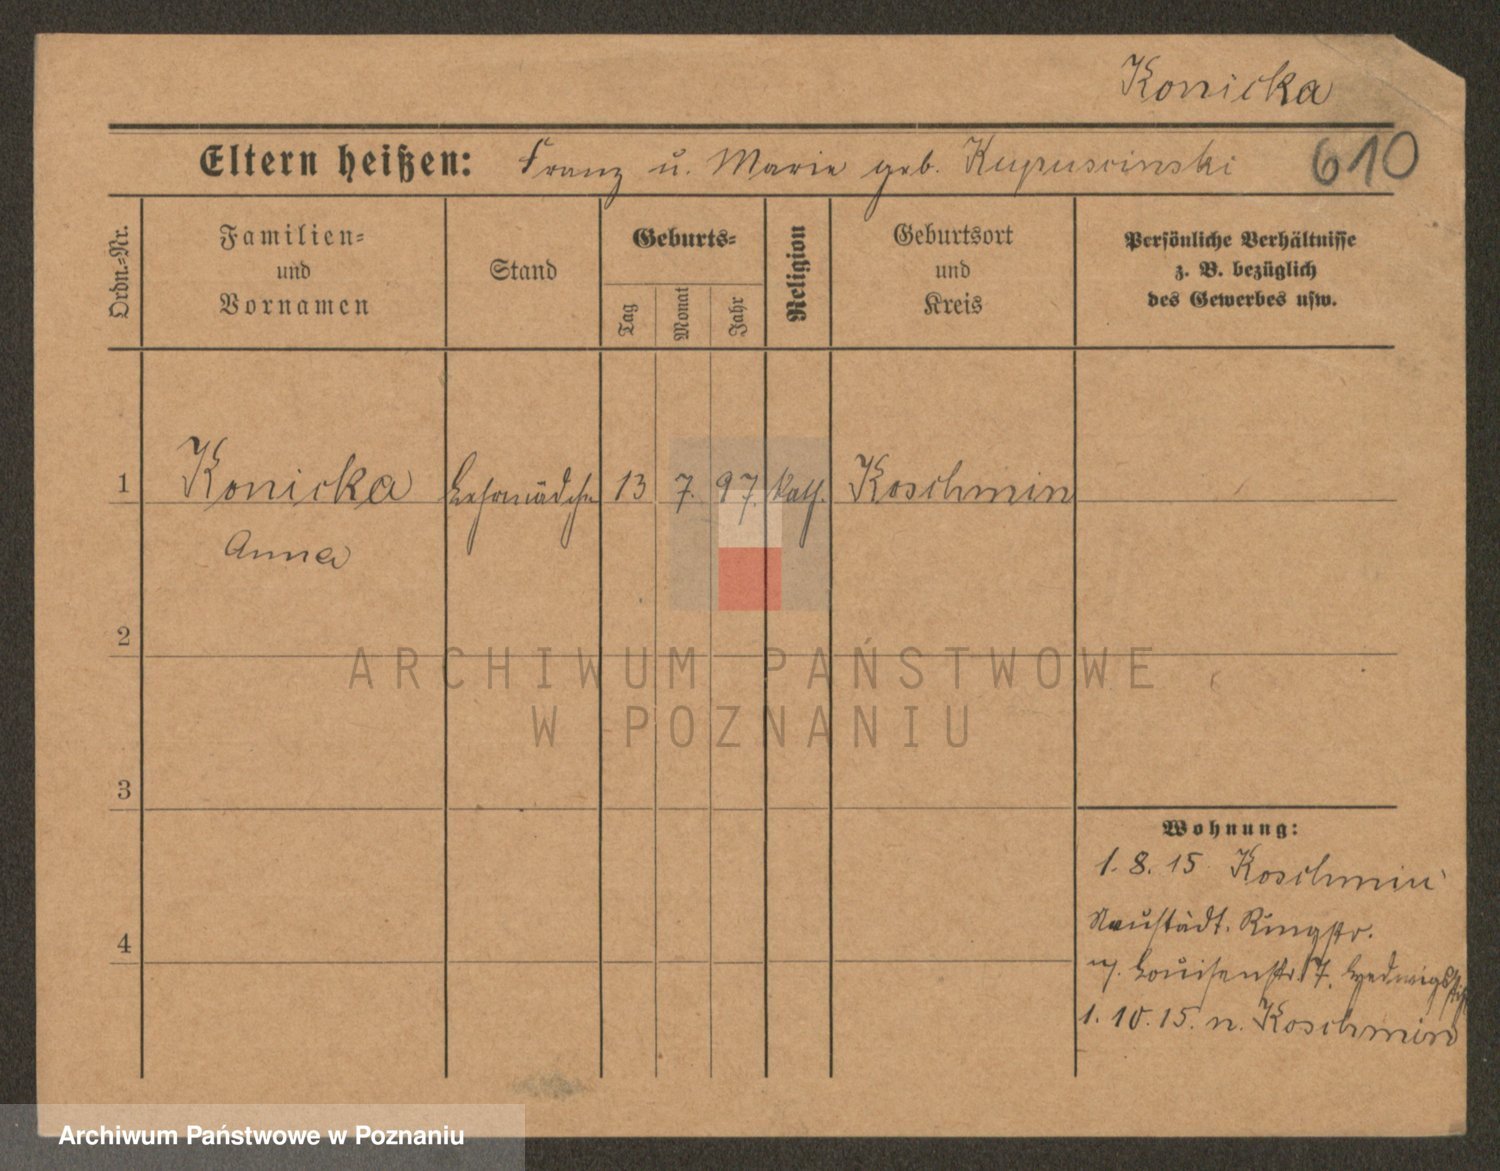 Konicka
Eltern heißen: Franz u. Marie geb. Kupuscinski 610
Ordn.=Nr.
Familien=
und
Vornamen
Stand
Geburts=
Tag
Monat
Jahr
Religion
Geburtsort
und
Kreis
Persönliche Verhältnisse
z. B. bezüglich
des Gewerbes usw.
1 Konicka Lehrmädchen 13 7. 97. kath. Koschmin
Anna
2
3
4
Wohnung:
1. 8. 15 Koschmin
Neustädt. Ringstr.
n. Louisenstr. 17. Hedwigsstift
1. 10. 15. n. Koschmin
ARCHIWUM PAŃSTWOWE
W POZNANIU
Archiwum Państwowe w Poznaniu